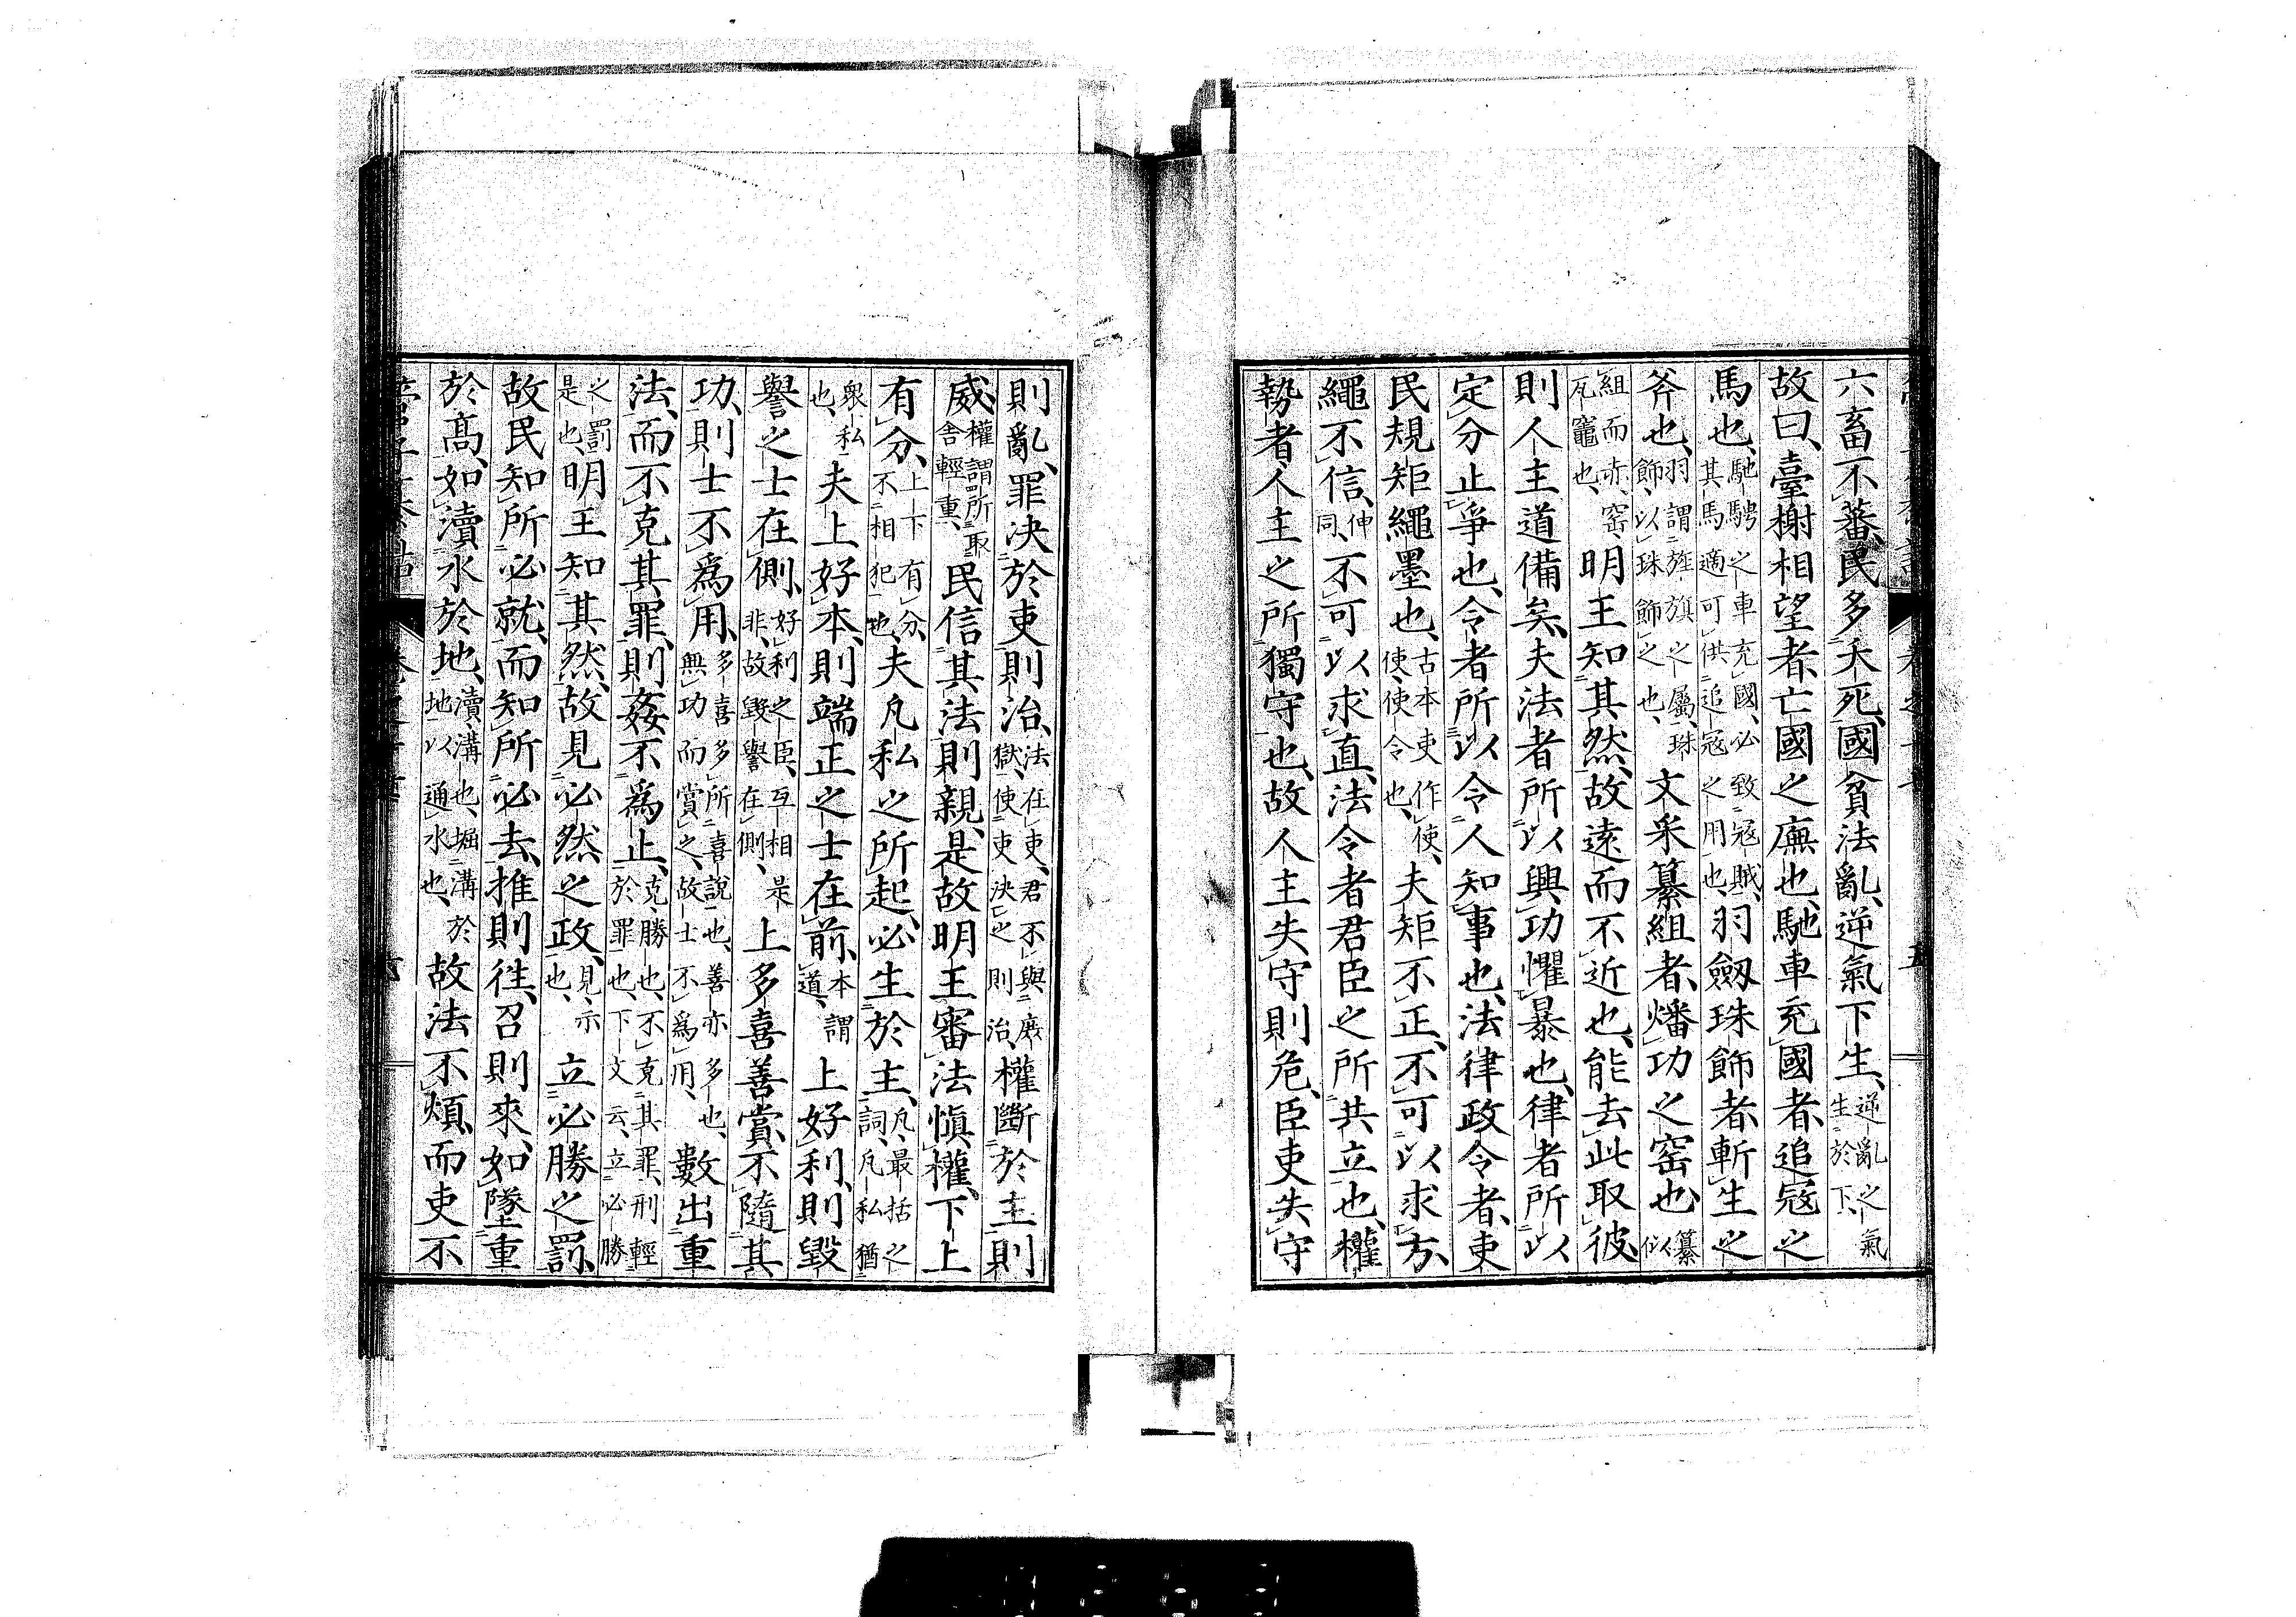 六畜不蕃民多夭死國貧法亂逆氣下生逆亂之氣生於下
故曰臺榭相望者亡國之廡也馳車充國者追寇之
馬也馳騁之車充國必致寇賊其馬適可供追寇之用也羽劔珠飾者斬生之
斧也羽謂旌旗之屬珠飾以珠飾之也文采纂組者燔功之窑也纂似
組而赤窑瓦竈也明王知其然故遠而不近也能去此取彼
則人主道備矣夫法者所以興功懼暴也律者所以
定分止爭也令者所以令人知事也法律政令者吏
民規矩繩墨也古本吏作使使使令也夫矩不正不可以求方
繩不信伸同不可以求直法令者君臣之所共立也權
勢者人主之所獨守也故人主失守則危臣吏失守
則亂罪決於吏則治法任吏君不與獄使吏決之則治權斷於主則
威權謂所取舍輕重民信其法則親是故明王審法愼權下上
有分上下有分不相犯也夫凡私之所起必生於主凡最括之詞凡私猶
衆私也夫上好本則端正之士在前本謂道上好利則毀
譽之士在側好利之臣互相是非故毀譽在側上多喜善賞不隨其
功則士不爲用多喜多所喜說也善亦多也無功而賞之故士不爲用數出重
法而不克其罪則姦不爲止克勝也不克其罪刑輕於罪也下文云立必勝
之罰是也明王知其然故見必然之政見示也立必勝之罰
故民知所必就而知所必去推則往召則來如墜重
於高如瀆水於地瀆溝也堀溝於地以通水也故法不煩而吏不